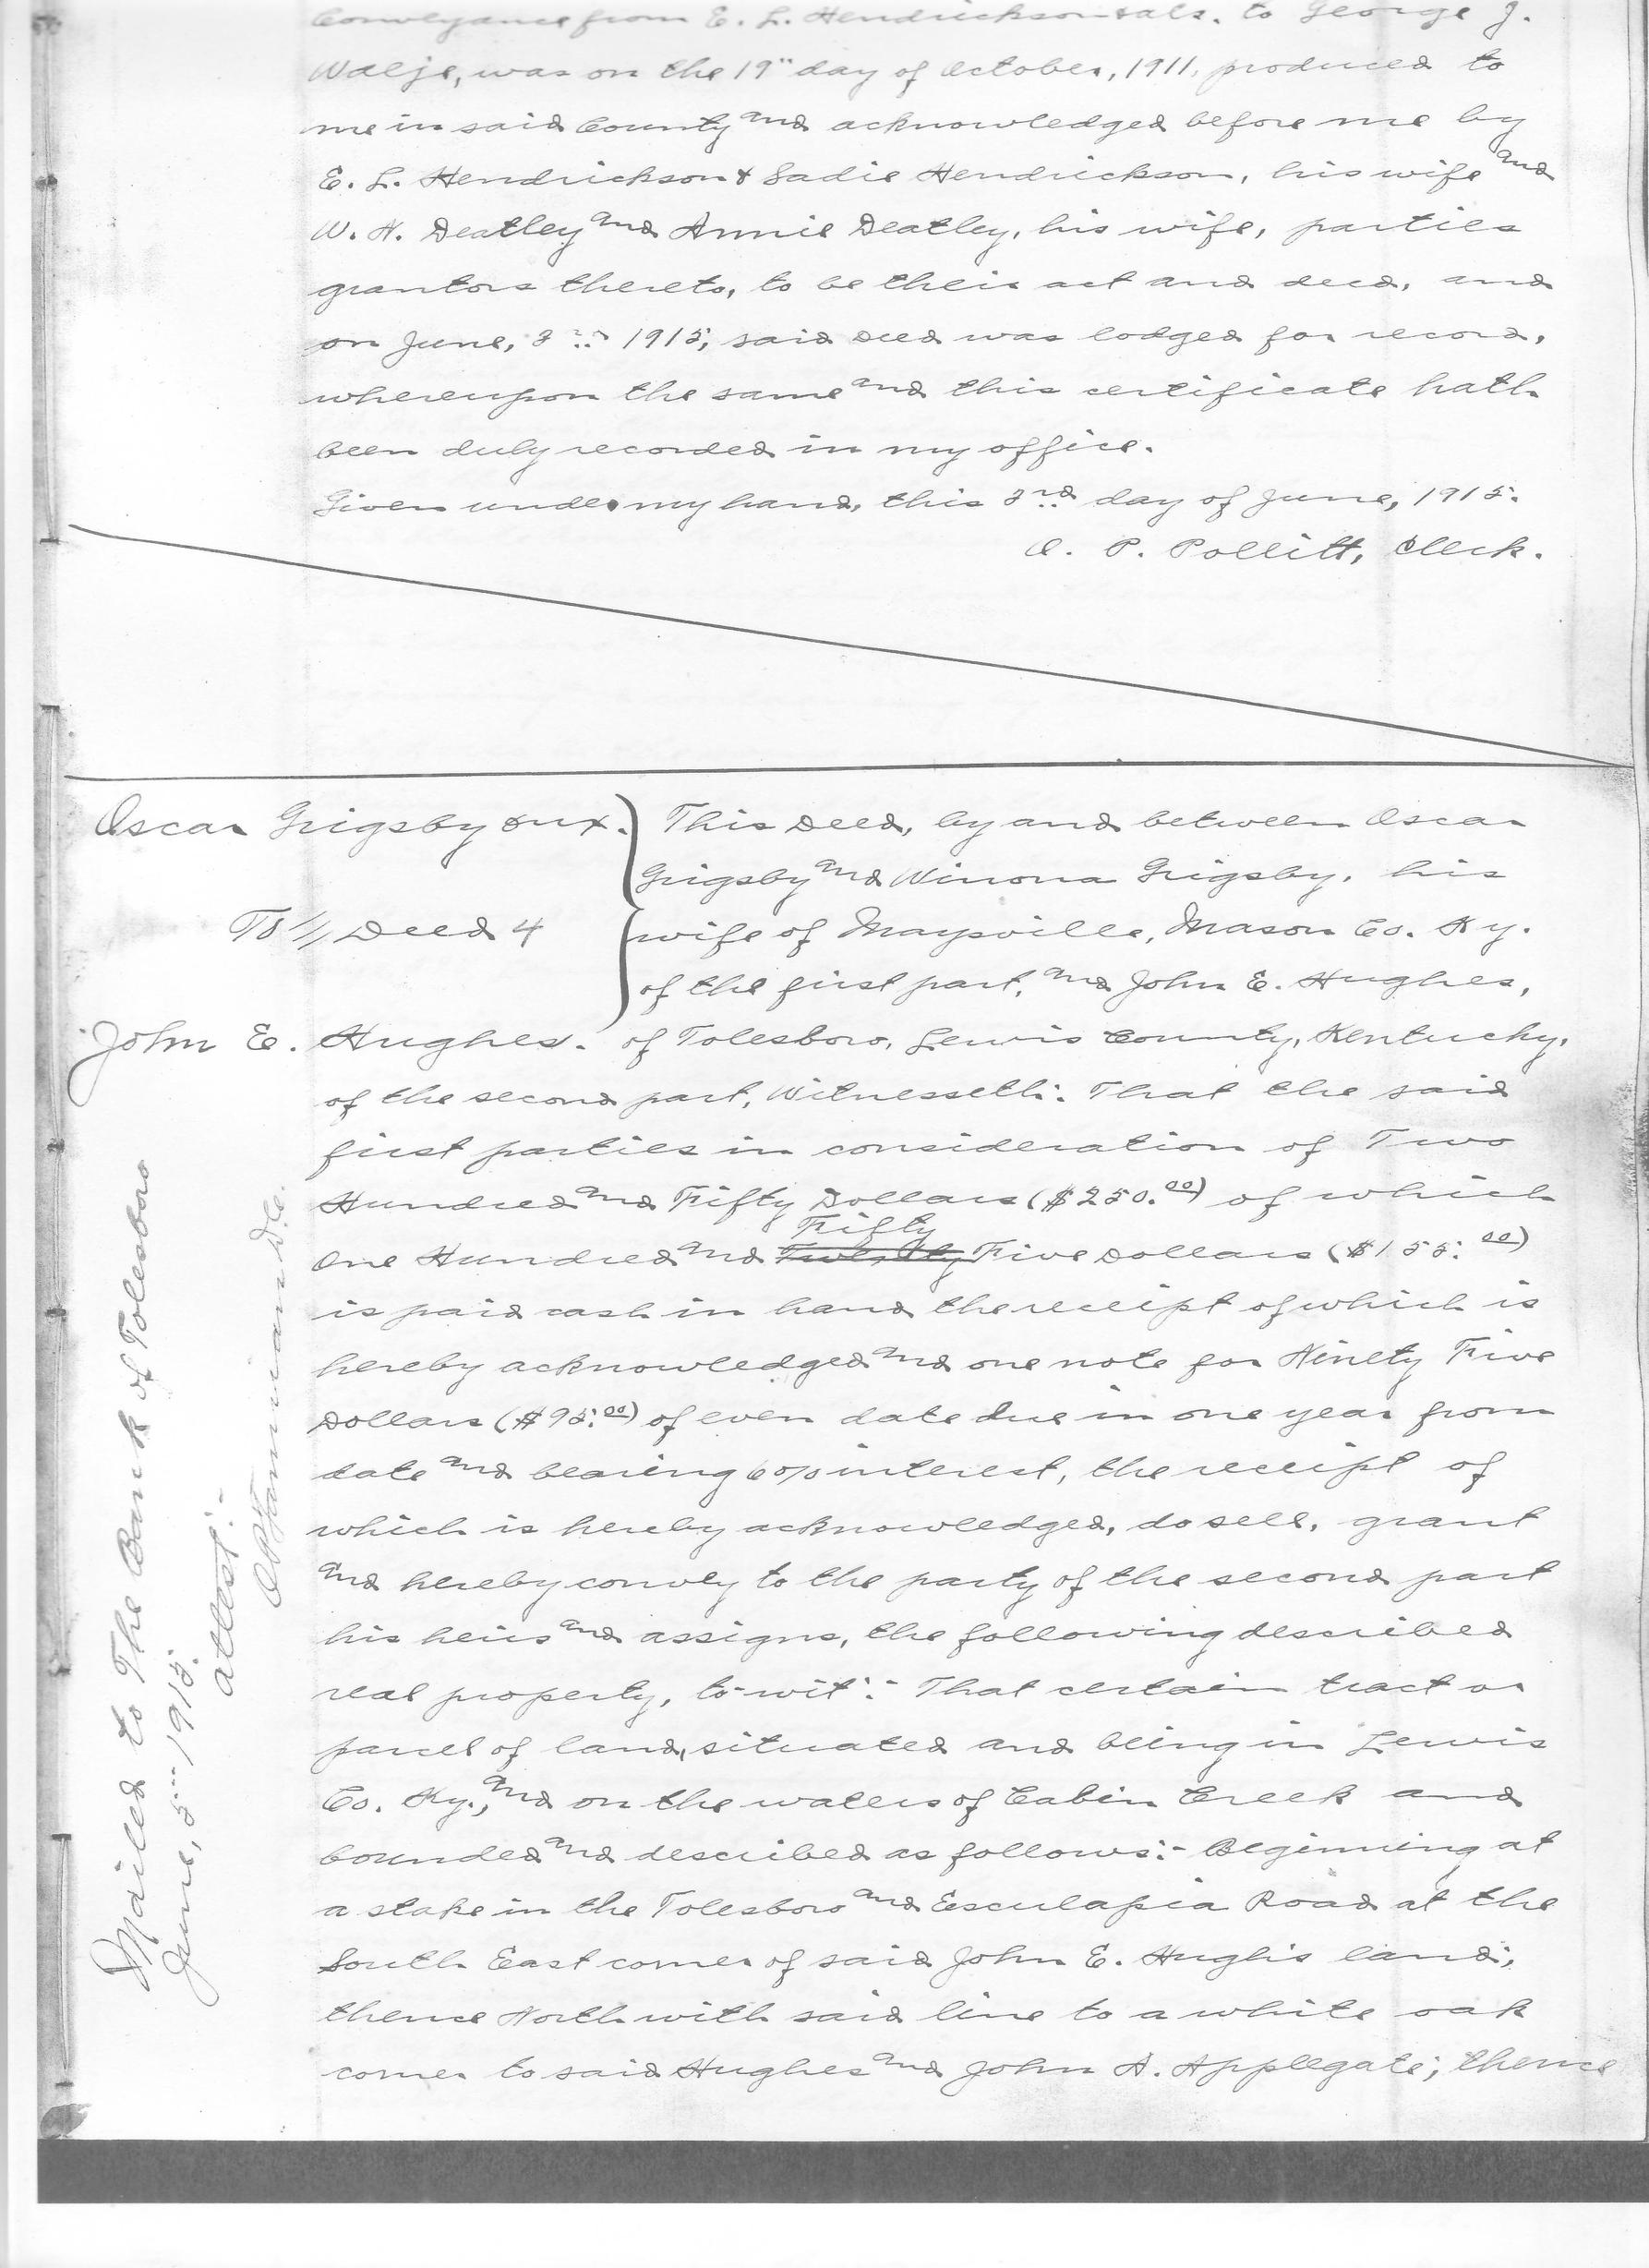 Conveyance from E. L. Hendrickson & als. to George J.
Walje, was on the 19" day of October, 1911, produced to
me in said County and acknowledged before me by
E. L. Hendrickson & Sadie Hendrickson, his wife and
W. H. Deatley and Annie Deatley, his wife, parties
grantors thereto, to be their act and deed, and
on June, 3rd 1915, said Deed was lodged for record,
whereupon the same and this certificate hath
been duly recorded in my office.
Given under my hand, this 3rd day of June, 1915.
O. P. Pollitt, Clerk.
Oscar Grigsby & ux.
To // Deed 4
John E. Hughes.
This Deed, by and between Oscar
Grigsby and Winona Grigsby, his
wife of Maysville, Mason Co. Ky.
of the first part, and John E. Hughes,
of Tolesboro, Lewis County, Kentucky,
of the second part, Witnesseth: That the said
first parties in consideration of Two
Hundred and Fifty Dollars ($250.00) of which
Fifty
One Hundred and Twenty Five Dollars ($155.00)
is paid cash in hand the receipt of which is
hereby acknowledged and one note for Ninety Five
Dollars ($95.00) of even date due in one year from
date and bearing 6% interest, the receipt of
which is hereby acknowledged, do sell, grant
and hereby convey to the party of the second part
his heirs and assigns, the following described
real property, to-wit:- That certain tract or
parcel of land, situated and being in Lewis
Co. Ky., and on the waters of Cabin Creek and
bounded and described as follows:- Beginning at
a stake in the Tolesboro and Esculapia Road at the
South East corner of said John E. Hugh's land;
thence North with said line to a white oak
corner to said Hughes and John A. Applegate; thence
Mailed to The Bank of Tolesboro
June, 5" 1915.
Attest:-